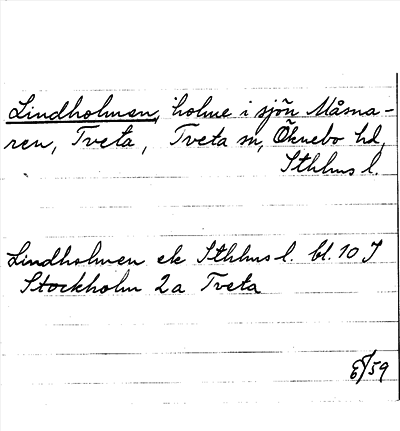 Lindholmen, holme i sjön Måsna-
ren, Tveta, Tveta sn, Öknebo hd,
Sthlms l.
Lindholmen ek Sthlms l. bl. 10 J
Stockholm 2a Tveta
/59